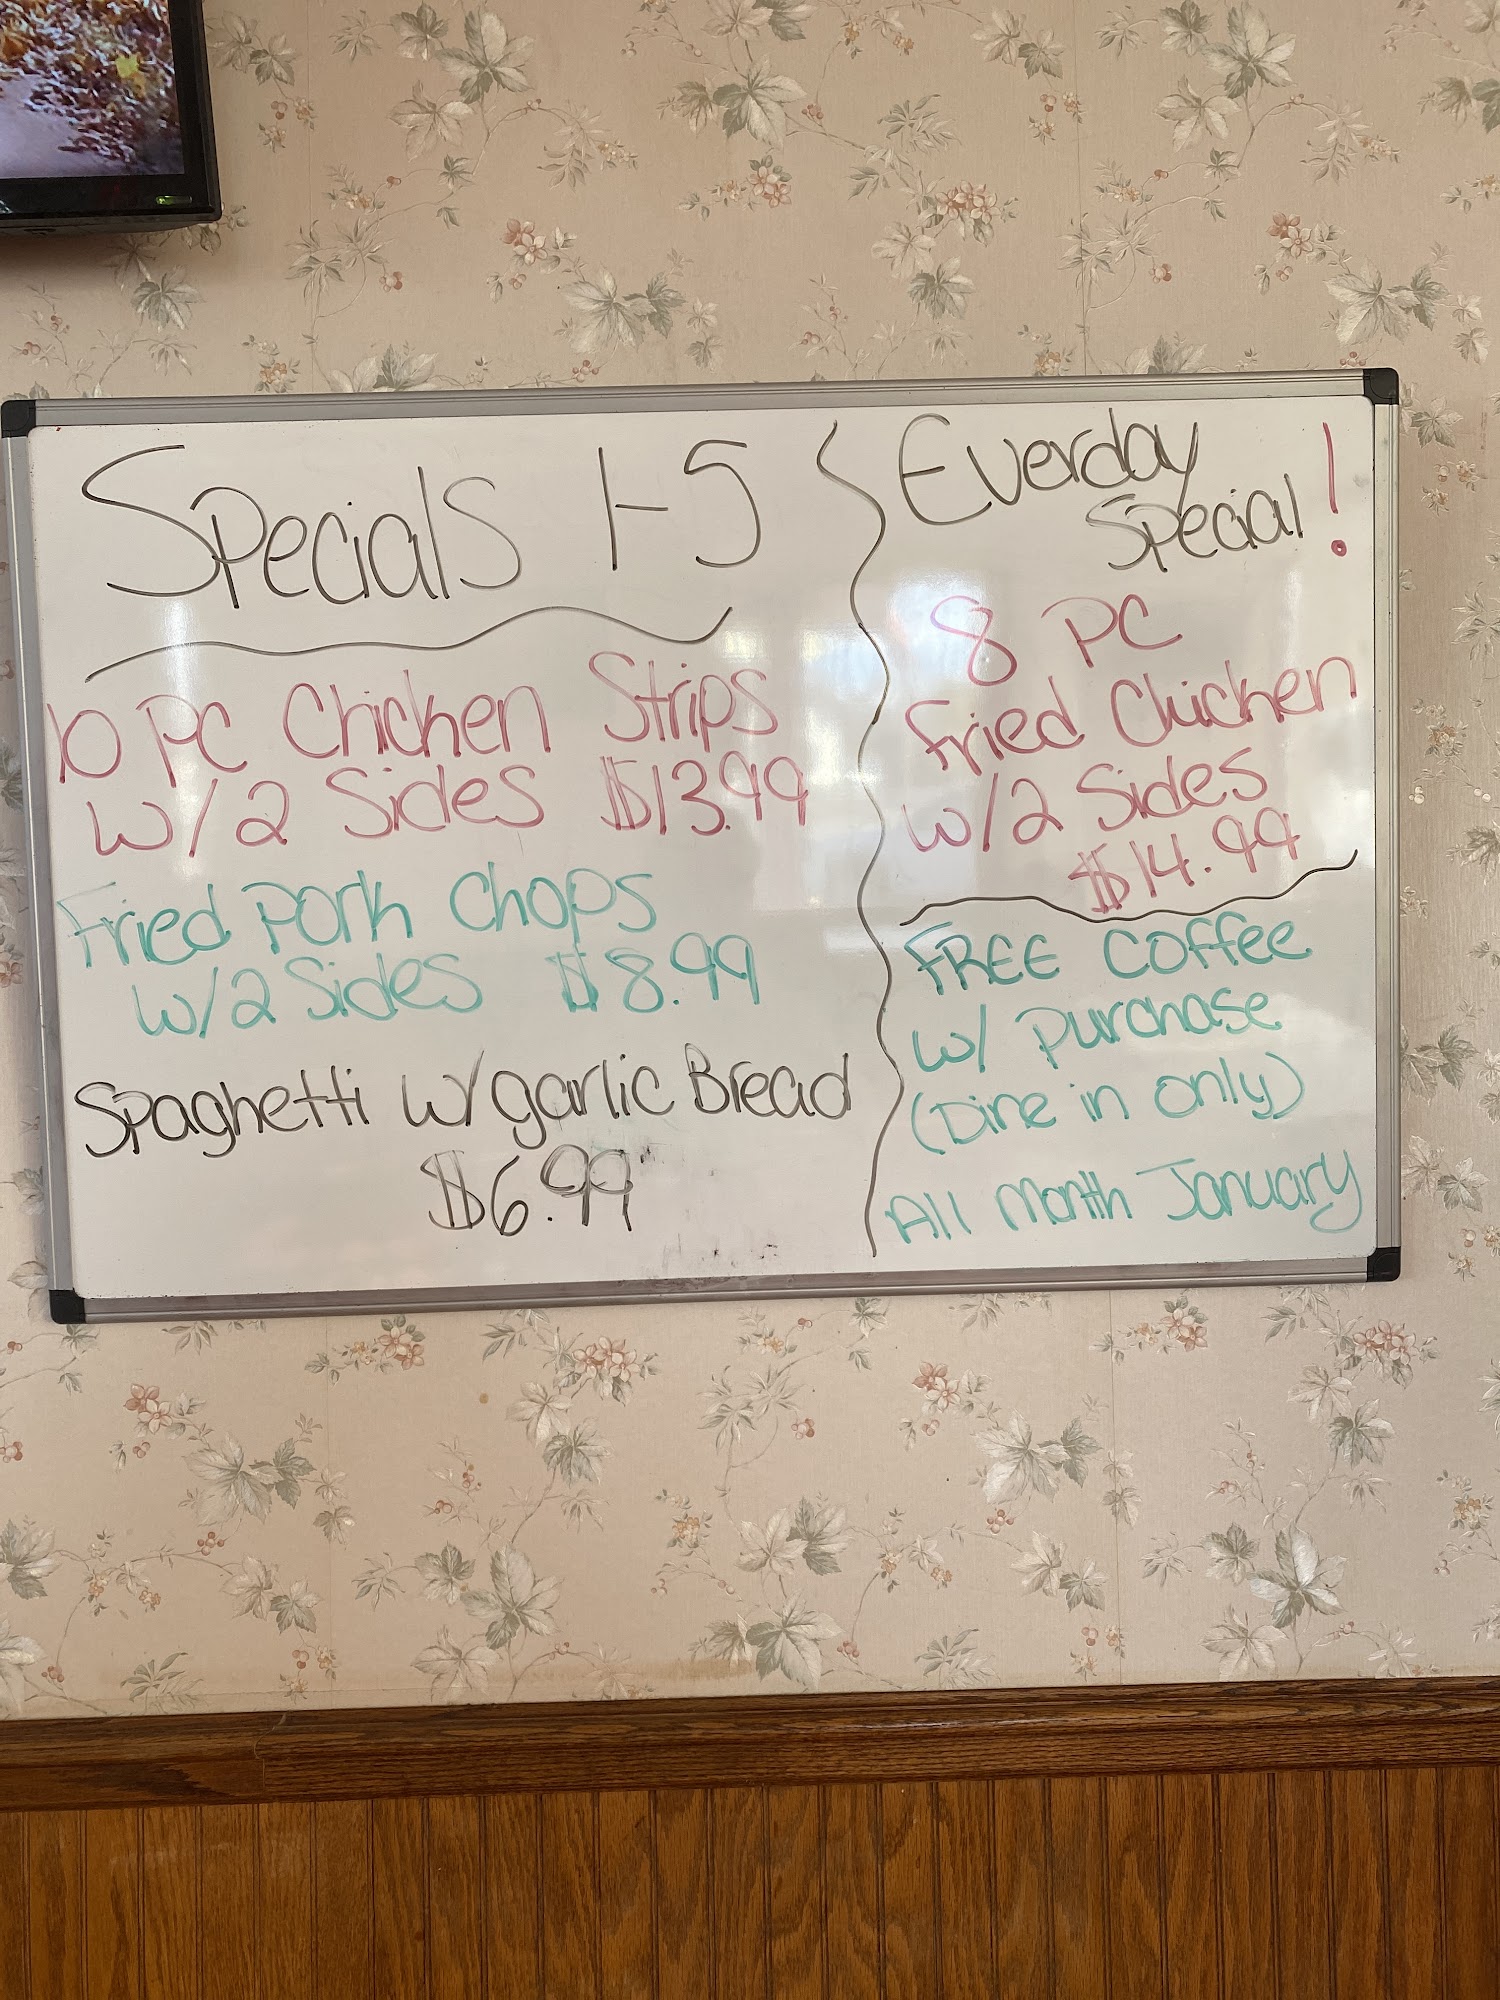 Specials 1-5
10 PC Chicken Strips
w/2 Sides $13.99
Fried Pork Chops
w/2 Sides $8.99
Spaghetti w/garlic Bread
$6.99
Everday
Special!
8 PC
Fried Chicken
w/2 Sides
$14.99
FREE Coffee
w/ Purchase
(Dine in only)
All Month January